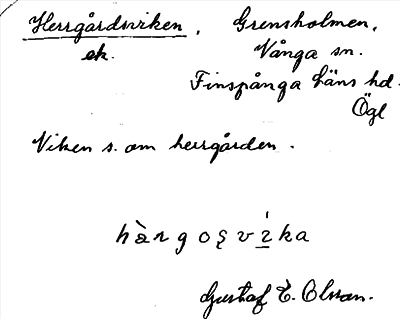 Herrgårdsviken, Grensholmen,
ek. Vånga sn.
Finspånga läns hd.
Ögl
Viken s. om herrgården.
hàrgoșvíka
Gustaf E. Olsson.